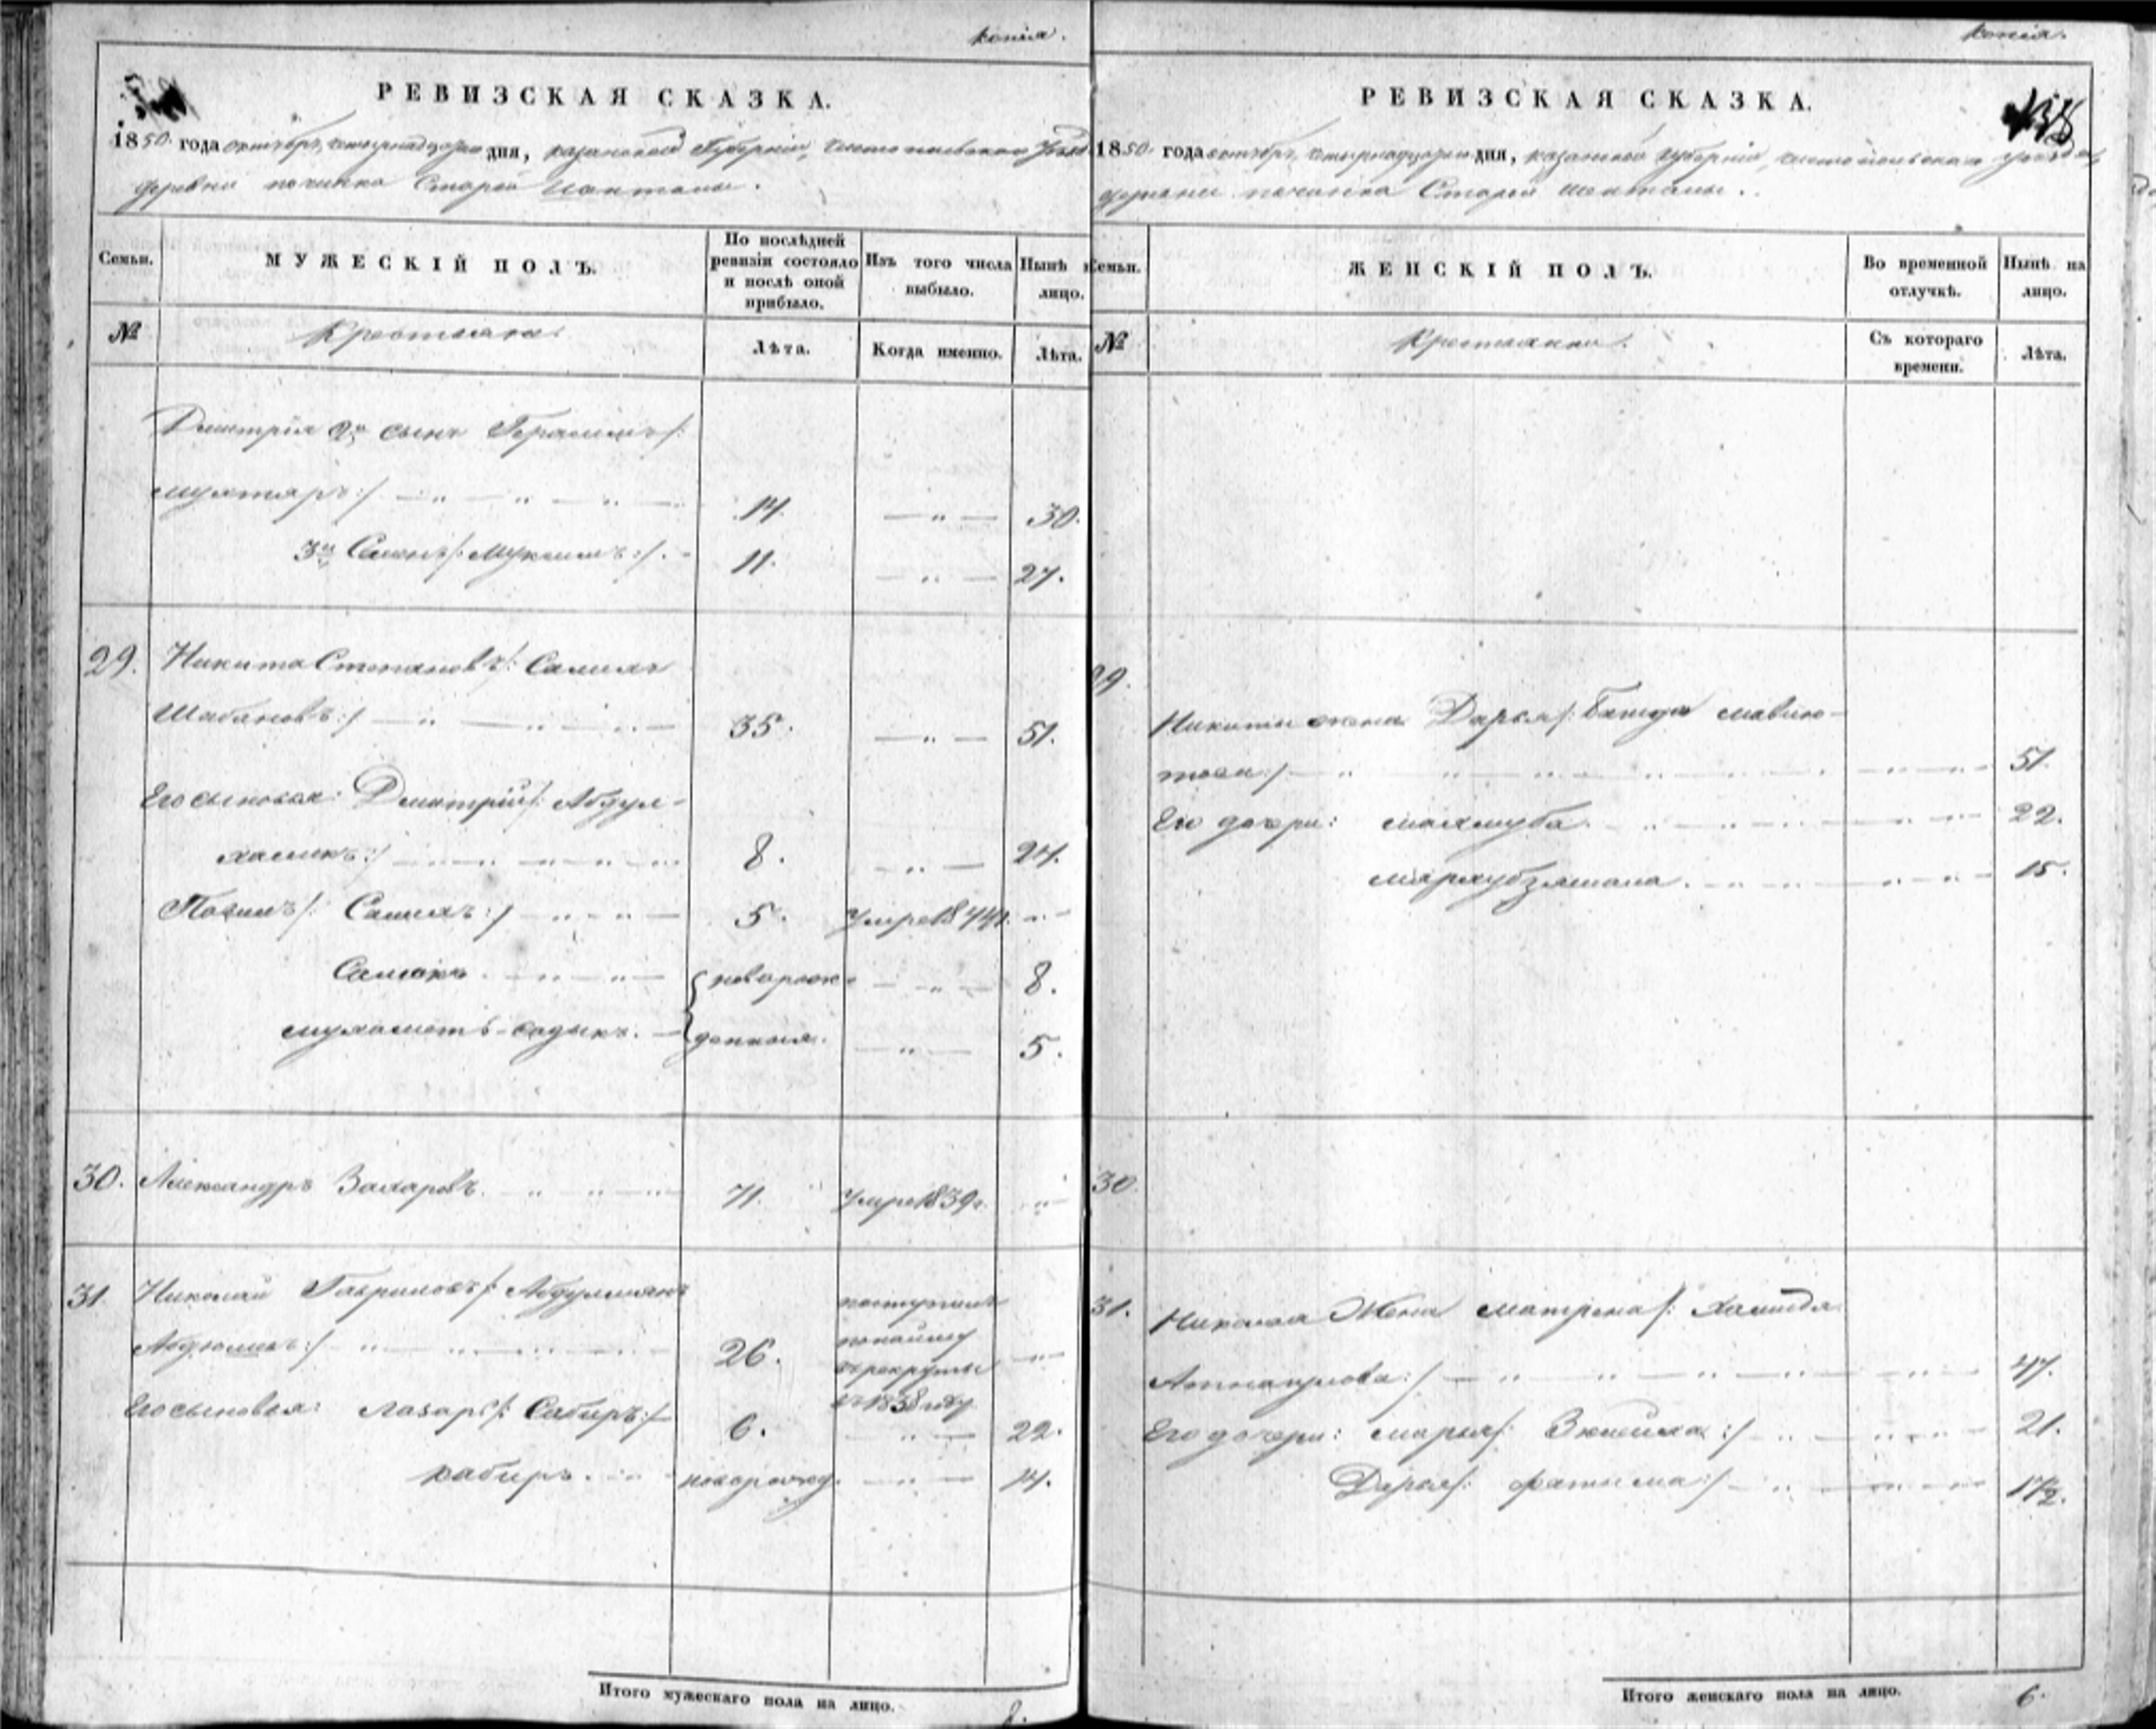 копія.
РЕВИЗСКАЯ СКАЗКА.
1850 года октября, четырнадцатаго дня, казанской Губерніи, чистопольскаго Уезда
деревни починка Старой Иштаны.
Семьи.
МУЖЕСКІЙ ПОЛЪ.
По послѣдней ревизіи состояло и послѣ оной прибыло.
Изъ того числа выбыло.
Нынѣ на лицо.
№
Крестьяне.
Лѣта.
Когда именно.
Лѣта.
Дмитрія 2й сынъ Герасимъ /:
мухтаръ :/ 14. 30.
3й Семенъ /: Муксинъ :/. 11. 27.
29. Никита Степановъ /: Салихъ
Шабановъ :/ 35. 51.
Его сыновья: Дмитрій /: Абдул-
халикъ :/ 8. 24.
/: Салихъ :/ 5. Умре 1844г.
новорож-
8.
мухаметъ-садыкъ.
денныя.
5.
30. Александръ Захаровъ. 71. Умре 1839г.
31. Николай Гавриловъ /:
:/ 26. поступилъ
по найму
въ рекруты
въ 1838 году
Его сыновья: Лазарь /: Сабиръ :/ 6. 22.
кабиръ. новорожд. 14.
Итого мужескаго пола на лицо. 8.
копія.
РЕВИЗСКАЯ СКАЗКА.
138
1850 года октября, четырнадцатаго дня, казанской губерніи, чистопольскаго уезда,
деревни починка Старой
Семьи.
ЖЕНСКІЙ ПОЛЪ.
Во временной отлучкѣ.
Нынѣ на лицо.
№
Крестьянки.
Съ котораго времени.
Лѣта.
29.
Никиты жена Дарья /:
:/ 51.
Его дочери: махмуба. 22.
15.
30.
31. Николая Жена матрена /: Хамида
:/ 47.
Его дочери: марья /: :/ 21.
Дарья /: фатима :/ 17½.
Итого женскаго пола на лицо. 6.